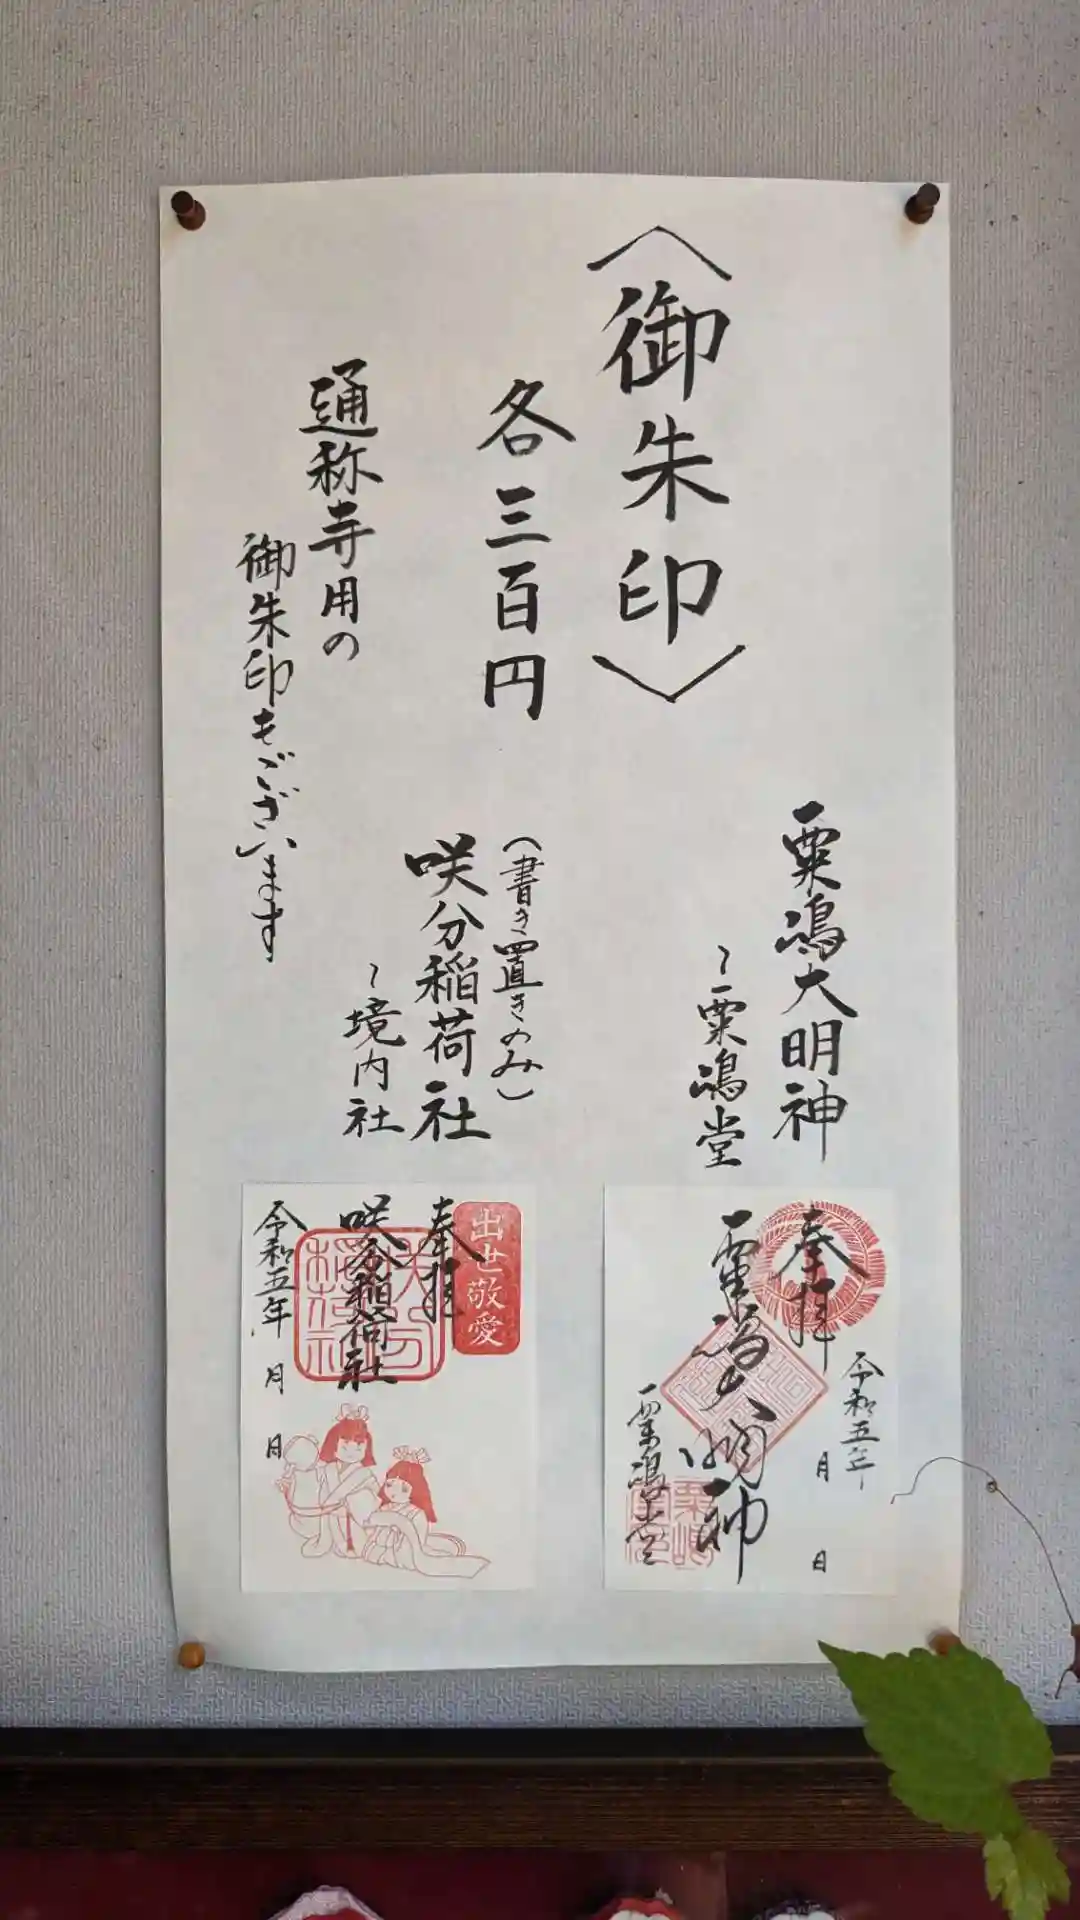 〈御朱印〉
各三百円
粟嶋大明神
~粟嶋堂
(書き置きのみ)
咲分稲荷社
~境内社
通称寺用の
御朱印もございます
奉拝
令和五年 月 日
粟嶋大明神
粟嶋堂
出世敬愛
奉拝
咲分稲荷社
令和五年 月 日